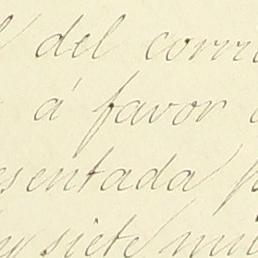 del corri
á favor
esentada p
y siete mil